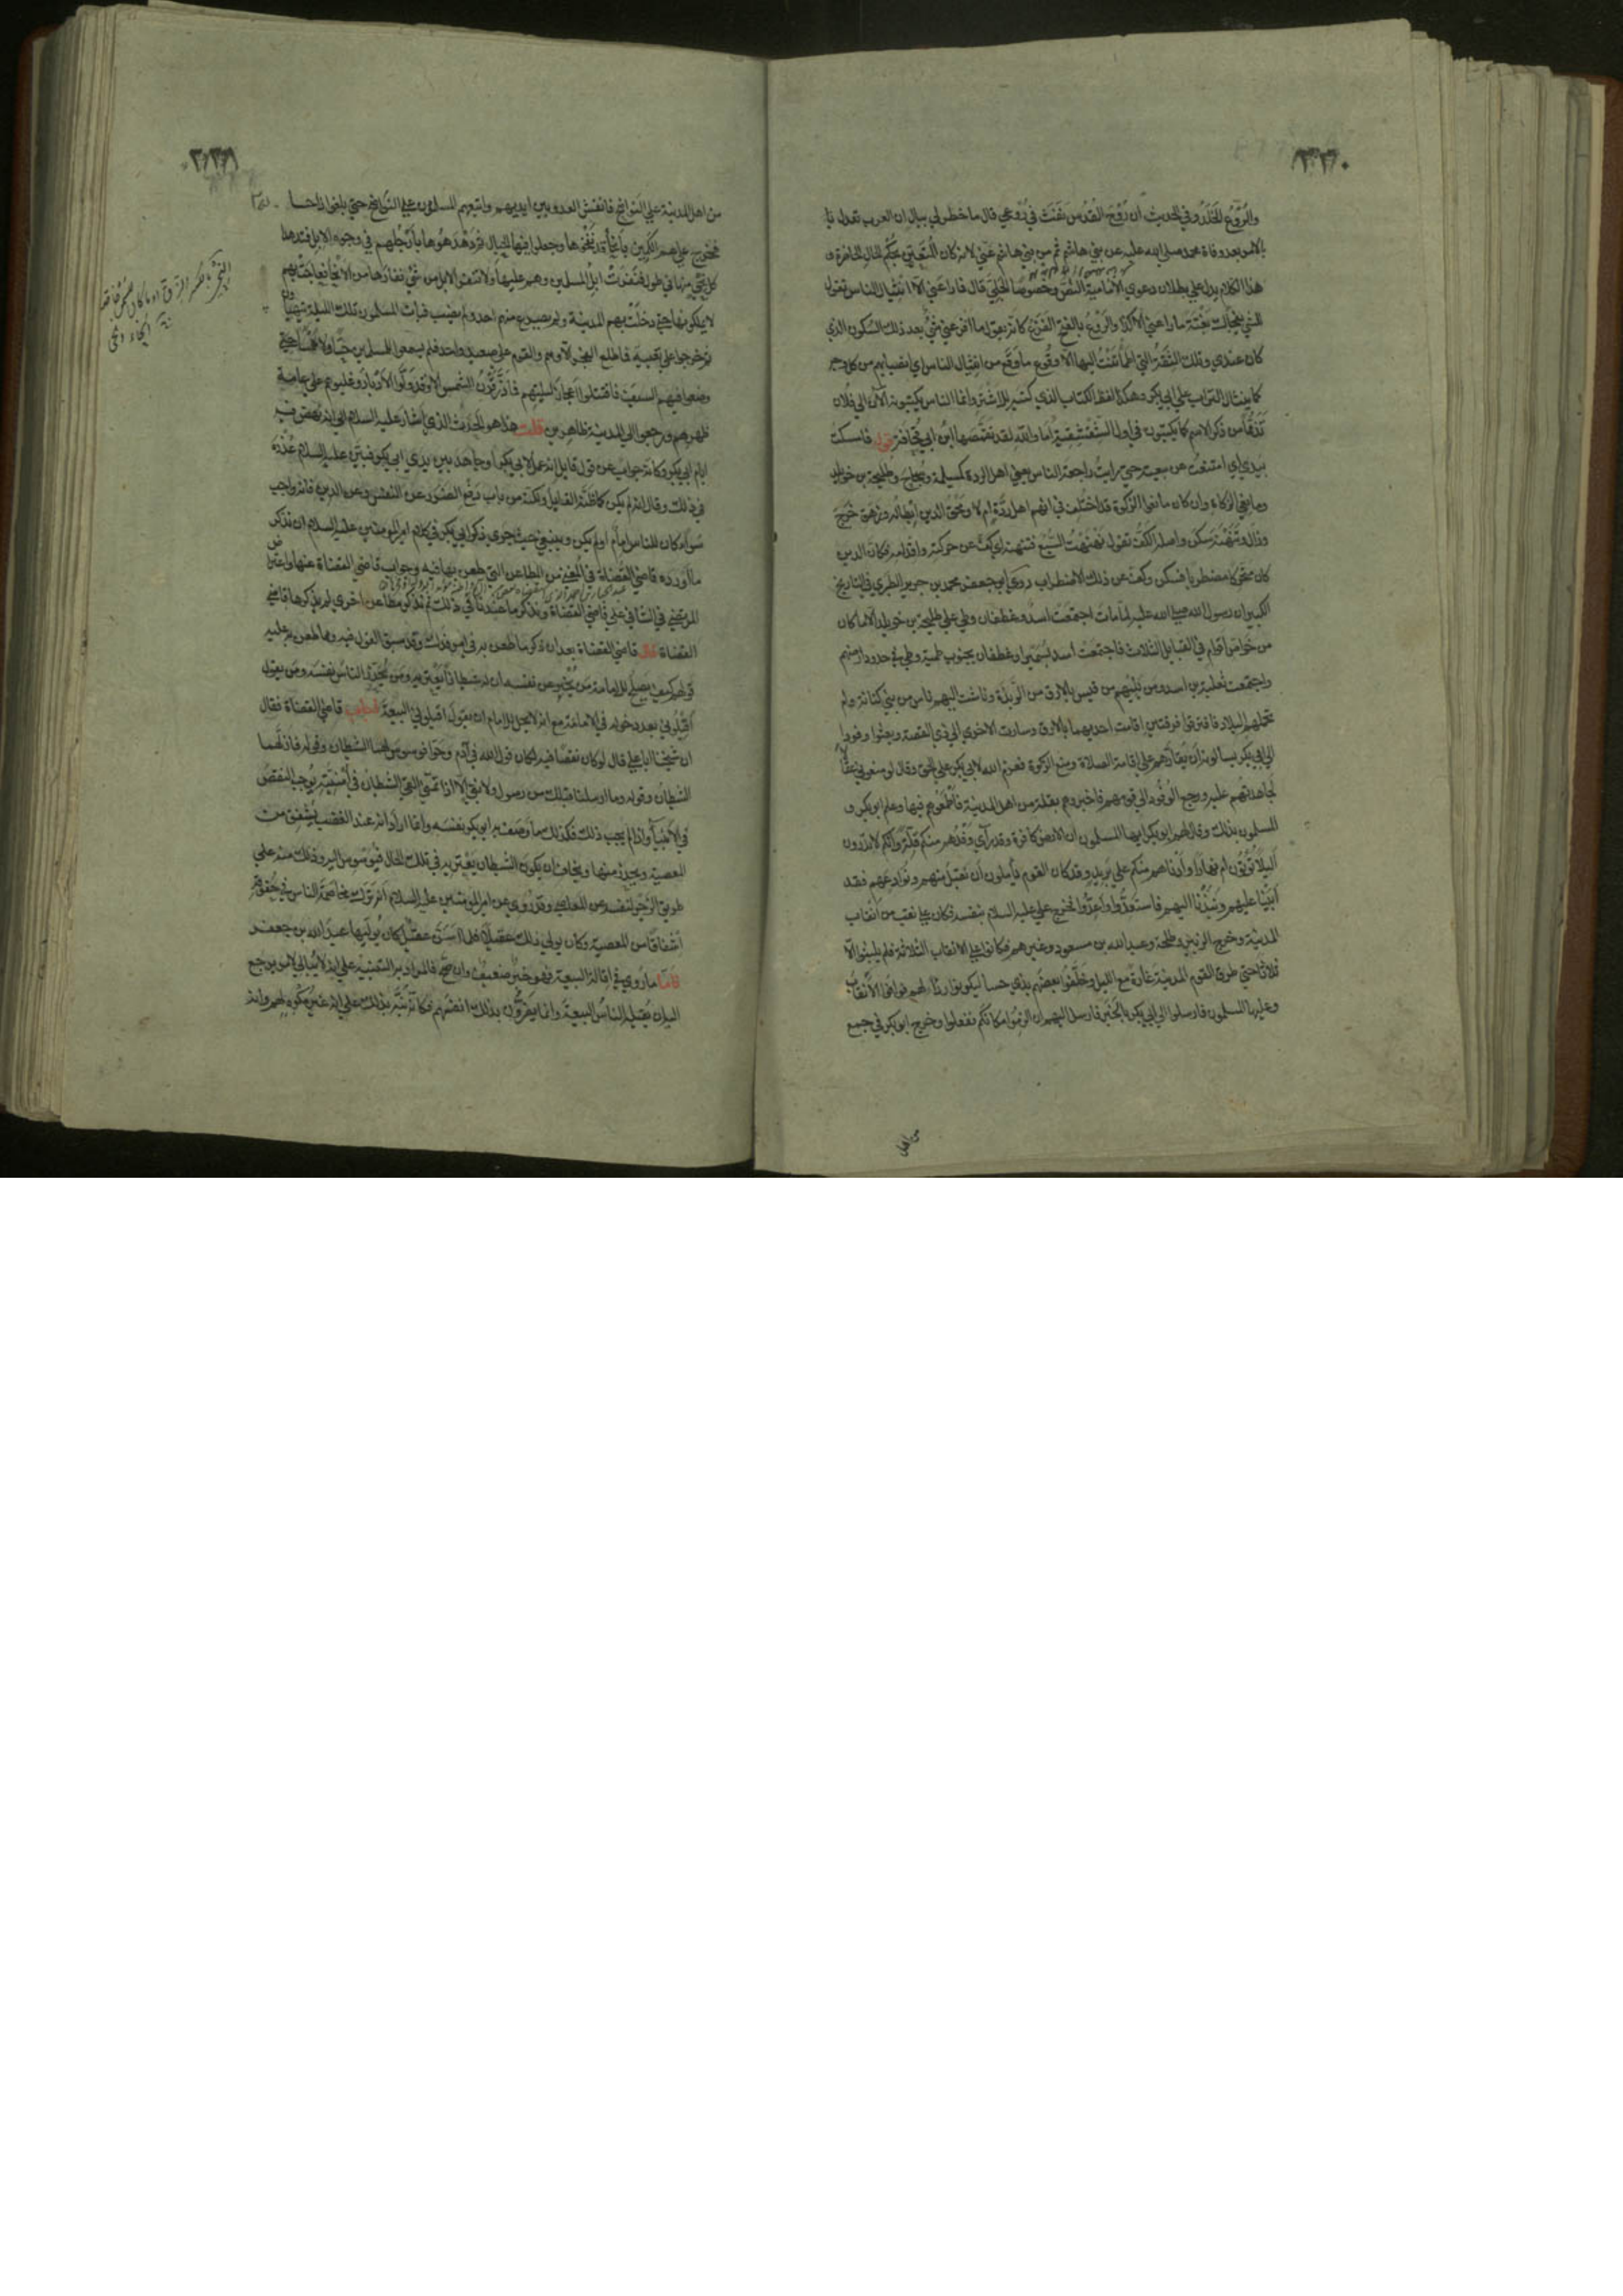 ٣٣٠
والرُّوعُ الخَلَدُ وفي الحديث ان رُوْحَ القُدُس نَفَثَ في رُوْعي قال ما خطر لي ببال ان العرب تعدل با
بالامر بعد وفاة محمد صلى الله عليه عن بني هاشم ثم من بني هاشم عني لانه كان المتعين بحكم الحال الحاضرة و
هذا الكلام يدل على بطلان دعوى الامامية النص وخصوصا الجلي قال فما راعني الا انثيال الناس تقول
للشي يفجأك بغتة ما راعني الا كذا والروع بالفتح الفزع كانه يقول ما افزعني شي بعد ذلك السكون الذي
كان عندي وتلك الثقة التي اطمأننت اليها الا وقوع ما وقع من انثيال الناس اي انصبابهم من كل وجه
كما ينثال التراب على ابي بكر وهكذا لفظ الكتاب الذي كتبه للاشتر وانما الناس يكتبونه الآن الى فلان
تذمما من ذكر الاسم كما يكتبون في اول الشقشقية اما والله لقد تقمصها ابن ابي قحافة قوله فامسكت
بيدي اي امتنعت عن بيعته حتى رايت راجعة الناس يعني اهل الردة كمسيلمة وسجاح وطليحة بن خويلد
ومانعي الزكاة وان كان مانعوا الزكوة قد اختلف في انهم اهل ردة ام لا ومحق الدين ابطاله وزهق خرج
وزال وتنهنه سكن واصله الكف تقول نهنهت السبع فتنهنه اي كف عن حركته واقدامه فكان الدين
كان متحركا مضطربا فسكن وكف عن ذلك الاضطراب روى ابو جعفر محمد بن جرير الطبري في التاريخ
الكبير ان رسول الله صلى الله عليه لما مات اجتمعت اسد وغطفان وطي على طليحة بن خويلد الا ما كان
من خواص اقوام في القبايل الثلاث فاجتمعت اسد بسميرا وغطفان بجنوب طيبة وطي في حدود ارضهم
واجتمعت ثعلبة بن اسد ومن يليهم من قيس بالابرق من الربذة وناشب اليهم ناس من بني كنانة ولم
تحملهم البلاد فافترقوا فرقتين اقامت احديهما بالابرق وسارت الاخرى الى ذي القصة وبعثوا وفودا
الى ابي بكر يسالونه ان يقارهم على اقامة الصلاة ومنع الزكوة فعزم الله لابي بكر على الحق وقال لو منعوني عقالا
لجاهدتهم عليه ورجع الوفود الى قومهم فاخبروهم بقلة من اهل المدينة فاطمعوهم فيها وعلم ابو بكر و
المسلمون بذلك وقال لهم ابو بكر ايها المسلمون ان الارض كافرة وقد راى وفدهم منكم قلة وانكم لا تدرون
اليلا تؤتون ام نهارا وادناهم منكم على بريد وقد كان القوم يأملون ان نقبل منهم ونوادعهم فقد
ابينا عليهم ونبذنا اليهم فاستعدوا واعدوا فخرج علي عليه السلام بنفسه فكان على نقب من انقاب
المدينة وخرج الزبير وطلحة وعبد الله بن مسعود وغيرهم فكانوا على الانقاب الثلاثة فلم يلبثوا الا
ثلاثا حتى طرق القوم المدينة غارة مع الليل وخلفوا بعضهم بذي حسا ليكونوا ردا لهم فوافوا الانقاب
وعليها المسلمون فارسلوا الى ابي بكر بالخبر فارسل اليهم ان الزموا مكانكم ففعلوا وخرج ابو بكر في جمع
من اهل
٣٣١
من اهل المدينة على النواضح فانفش العدو بين ايديهم واتبعهم المسلمون على النواضح حتى بلغوا ذا حسا
فخرج عليهم الكمين بانحاء قد نفخوها وجعلوا فيها الحبال ثم دهدهوها بارجلهم في وجوه الابل فتدهده
كل نحي منها في طوله فنفرت ابل المسلمين وهم عليها ولا تنفر الابل من شي نفارها من الانحاء فعاجت بهم
لا يملكونها حتى دخلت بهم المدينة ولم يصرع منهم احد ولم يصب فبات المسلمون تلك الليلة يتهيأون
ثم خرجوا على تعبية فما طلع الفجر الا وهم والقوم على صعيد واحد فلم يسمعوا للمسلمين حسا ولا همسا حتى
وضعوا فيهم السيف فاقتتلوا اعجاز ليلتهم فما ذر قرن الشمس الا وقد ولوا الادبار وغلبوهم على عامة
ظهرهم ورجعوا الى المدينة ظاهرين قلت هذا هو الحديث الذي اشار عليه السلام الى انه نهض فيه
ايام ابي بكر وكانه جواب عن قول قايل انه عمل لابي بكر وجاهد بين يدي ابي بكر فبين عليه السلام عذره
في ذلك وقال انه لم يكن كما ظنه القايل ولكنه من باب دفع الضرر عن النفس وعن الدين فانه واجب
سواء كان للناس امام او لم يكن وينبغي حيث جرى ذكر ابي بكر في كلام امير المومنين عليه السلام ان نذكر
ما اورده قاضي القضاة في المغني من المطاعن التي طعن بها فيه وجواب قاضي القضاة عنها واعتراض
المرتضى في الشافي على قاضي القضاة ونذكر ما عندنا في ذلك ثم نذكر مطاعن اخرى لم يذكرها قاضي
القضاة قال قاضي القضاة بعد ان ذكر ما طعن به في امر فدك وقد سبق القول فيه ومما طعن به عليه
قولهم كيف يصلح للامامة من يخبر عن نفسه ان له شيطانا يعتريه ومن يحذر الناس نفسه ومن يقول
اقيلوني بعد دخوله في الامامة مع انه لا يحل للامام ان يقول اقيلوني البيعة اجاب قاضي القضاة فقال
ان شيخنا ابا علي قال لو كان نقصا فيه لكان قول الله في آدم وحوا فوسوس لهما الشيطان وقوله فازلهما
الشيطان وقوله وما ارسلنا قبلك من رسول ولا نبي الا اذا تمنى القى الشيطان في امنيته يوجب النقص
في الانبيآ واذا لم يجب ذلك فكذلك ما وصف به ابو بكر نفسه وانما اراد انه عند الغضب يشفق من
المعصية ويحذر منها ويخاف ان يكون الشيطان يعتريه في تلك الحال فيوسوس اليه وذلك منه على
طريق الزجر لنفسه عن المعاصي وقد روي عن امير المومنين عليه السلام انه ترك مخاصمة الناس في حقوقه
اشفاقا من المعصية وكان يولي ذلك عقيلا فلما اسن عقيل كان يوليها عبد الله بن جعفر
فاما ما روي في اقالة البيعة فهو خبر ضعيف وان صح فالمراد به التنبيه على انه لا يبالي لامر يرجع
اليه ان يقيله الناس البيعة وانما يضرون بذلك انفسهم فكانه نبه بذلك على انه غير مكره لهم وانه